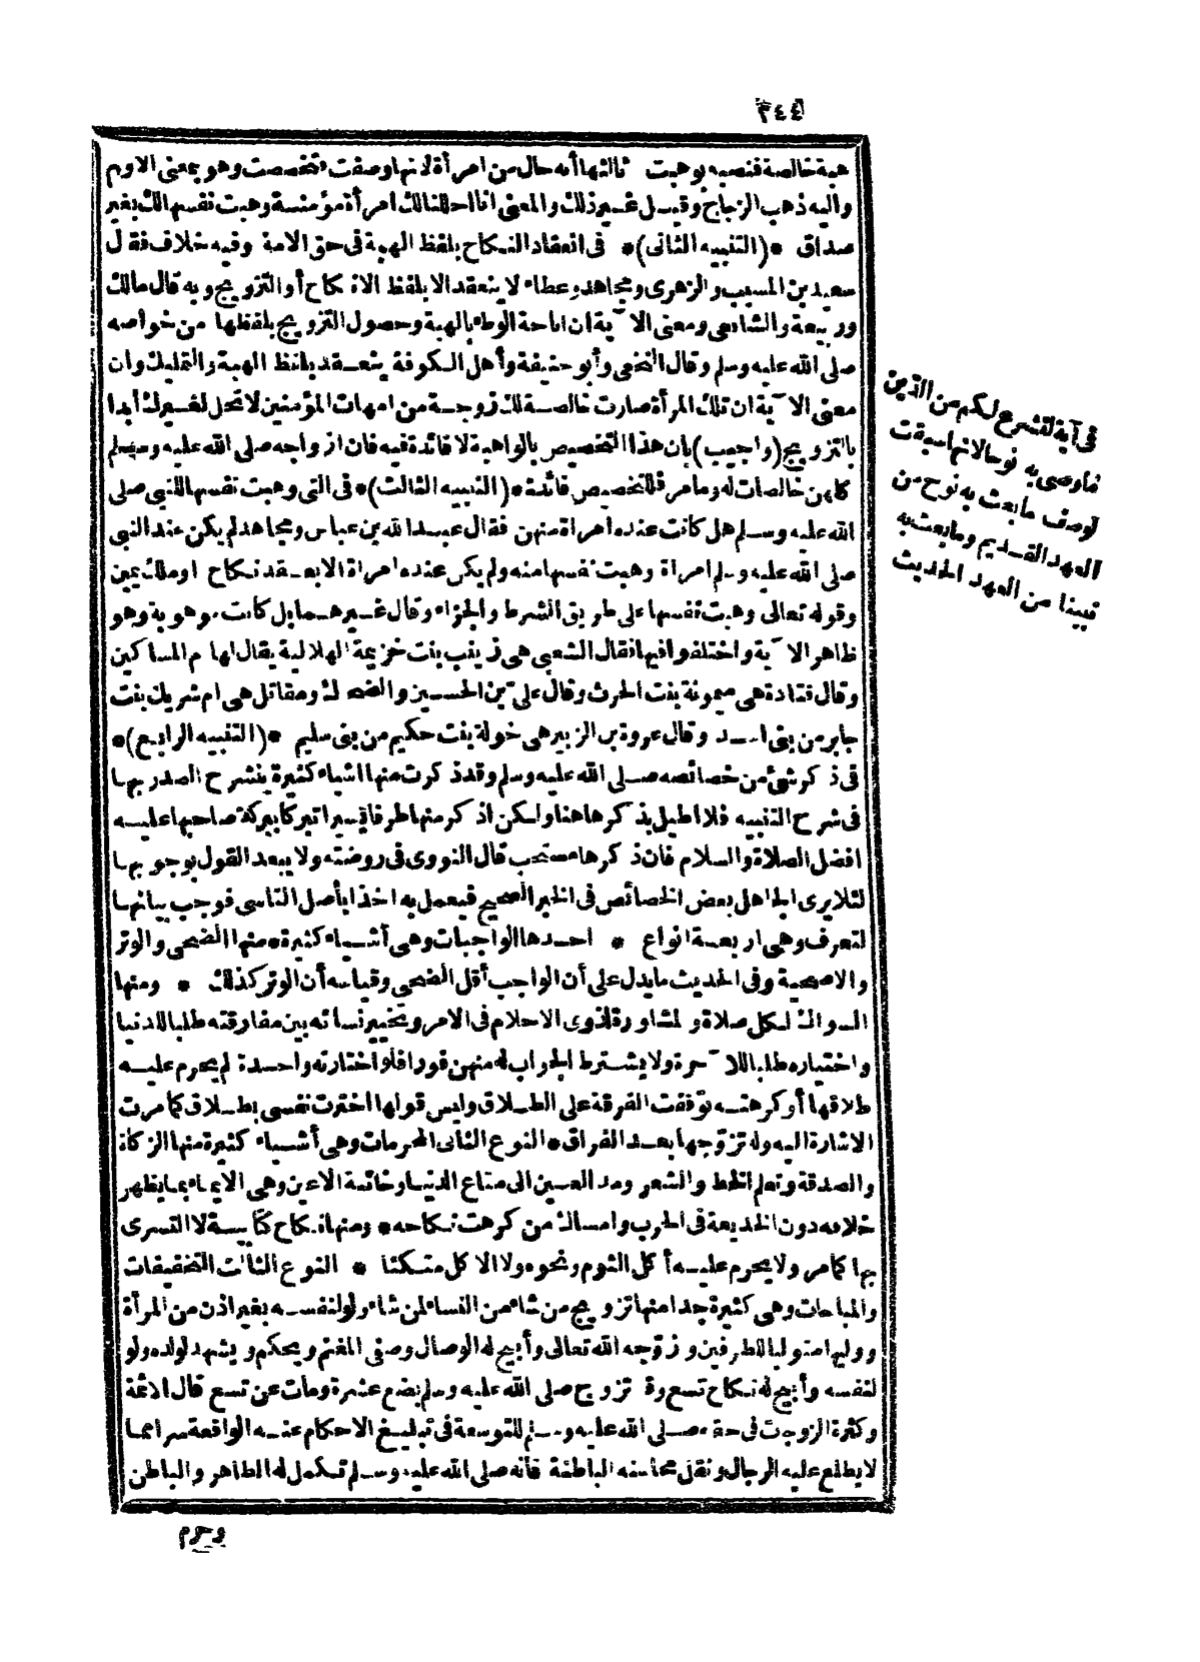 ٣٤٤
هبة خالصة فنصبه بوهبت ثالثها أنه حال من امرأة لانها وصفت فتخصصت وهو بمعنى الاول
واليه ذهب الزجاج وقيل غير ذلك والمعنى انا احللنا لك امرأة مؤمنة وهبت نفسها لك بغير
صداق *(التنبيه الثانى)* فى انعقاد النكاح بلفظ الهبة فى حق الامة وفيه خلاف فقال
سعيد بن المسيب والزهرى ومجاهد وعطاء لا ينعقد الا بلفظ الانكاح أو التزويج وبه قال مالك
وربيعة والشافعى ومعنى الآية ان اباحة الوطء بالهبة وحصول التزويج بلفظها من خواصه
صلى الله عليه وسلم وقال النخعى وأبو حنيفة وأهل الكوفة ينعقد بلفظ الهبة والتمليك وان
معنى الآية ان تلك المرأة صارت خالصة لك زوجة من امهات المؤمنين لا تحل لغيرك أبدا
بالتزويج (واجيب) بان هذا التخصيص بالواهبة لا فائدة فيه فان ازواجه صلى الله عليه وسلم
كلهن خالصات له وما مر فللتخصيص فائدة *(التنبيه الثالث)* فى التى وهبت نفسها للنبى صلى
الله عليه وسلم هل كانت عنده امرأة منهن فقال عبد الله بن عباس ومجاهد لم يكن عند النبى
صلى الله عليه وسلم امراة وهبت نفسها منه ولم يكن عنده امراة الا بعقد نكاح او ملك يمين
وقوله تعالى وهبت نفسها على طريق الشرط والجزاء وقال غيرهما بل كانت موهوبة وهو
ظاهر الآية واختلفوا فيها فقال الشعبى هى زينب بنت خزيمة الهلالية يقال لها ام المساكين
وقال قتادة هى ميمونة بنت الحرث وقال على بن الحسين والضحاك ومقاتل هى ام شريك بنت
جابر من بنى اسد وقال عروة بن الزبير هى خولة بنت حكيم من بنى سليم *(التنبيه الرابع)*
فى ذكر شئ من خصائصه صلى الله عليه وسلم وقد ذكرت منها اشياء كثيرة ينشرح الصدر بها
فى شرح التنبيه فلا اطيل بذكرها هنا ولكن اذكر منها طرفا يسيرا تبركا ببركة صاحبها عليه
افضل الصلاة والسلام فان ذكرها مستحب قال النووى فى روضته ولا يبعد القول بوجوبها
لئلا يرى الجاهل بعض الخصائص فى الخبر الصحيح فيعمل به اخذا بأصل التاسى فوجب بيانها
لتعرف وهى اربعة انواع * احدها الواجبات وهى أشياء كثيرة * منها الضحى والوتر
والاضحية وفى الحديث ما يدل على أن الواجب أقل الضحى وقياسه أن الوتر كذلك * ومنها
السواك لكل صلاة والمشاورة لذوى الاحلام فى الامر وتخيير نسائه بين مفارقته طلبا للدنيا
واختياره طلبا للآخرة ولا يشترط الجواب له منهن فورا فلو اختارته واحدة لم يحرم عليه
طلاقها أو كرهته توقفت الفرقة على الطلاق وليس قولها اخترت نفسى بطلاق كما مرت
الاشارة اليه وله تزوجها بعد الفراق * النوع الثانى المحرمات وهى أشياء كثيرة منها الزكاة
والصدقة وتعلم الخط والشعر ومد العين الى متاع الدنيا وخائنة الاعين وهى الايماء بما يظهر
خلافه دون الخديعة فى الحرب وامساك من كرهت نكاحه * ومنها نكاح كتابية لا التسرى
بها كما مر ولا يحرم عليه أكل الثوم ونحوه ولا الاكل متكئا * النوع الثالث التخفيفات
والمباحات وهى كثيرة جدا منها تزويج من شاء من النساء لمن شاء ولو لنفسه بغير اذن من المرأة
ووليها متوليا للطرفين وزوجه الله تعالى وأبيح له الوصال وصفى المغنم ويحكم ويشهد لولده ولو
لنفسه وأبيح له نكاح تسع وقد تزوج صلى الله عليه وسلم بضع عشرة ومات عن تسع قال الائمة
وكثرة الزوجات فى حقه صلى الله عليه وسلم للتوسعة فى تبليغ الاحكام عنه الواقعة سرا مما
لا يطلع عليه الرجال ونقل محاسنه الباطنة فانه صلى الله عليه وسلم تكمل له الظاهر والباطن
وحرم
فى آية شرع لكم من الدين
ما وصى به نوحا لانها سيقت
لوصف ما بعث به نوح من
العهد القديم وما بعث به
نبينا من العهد الحديث